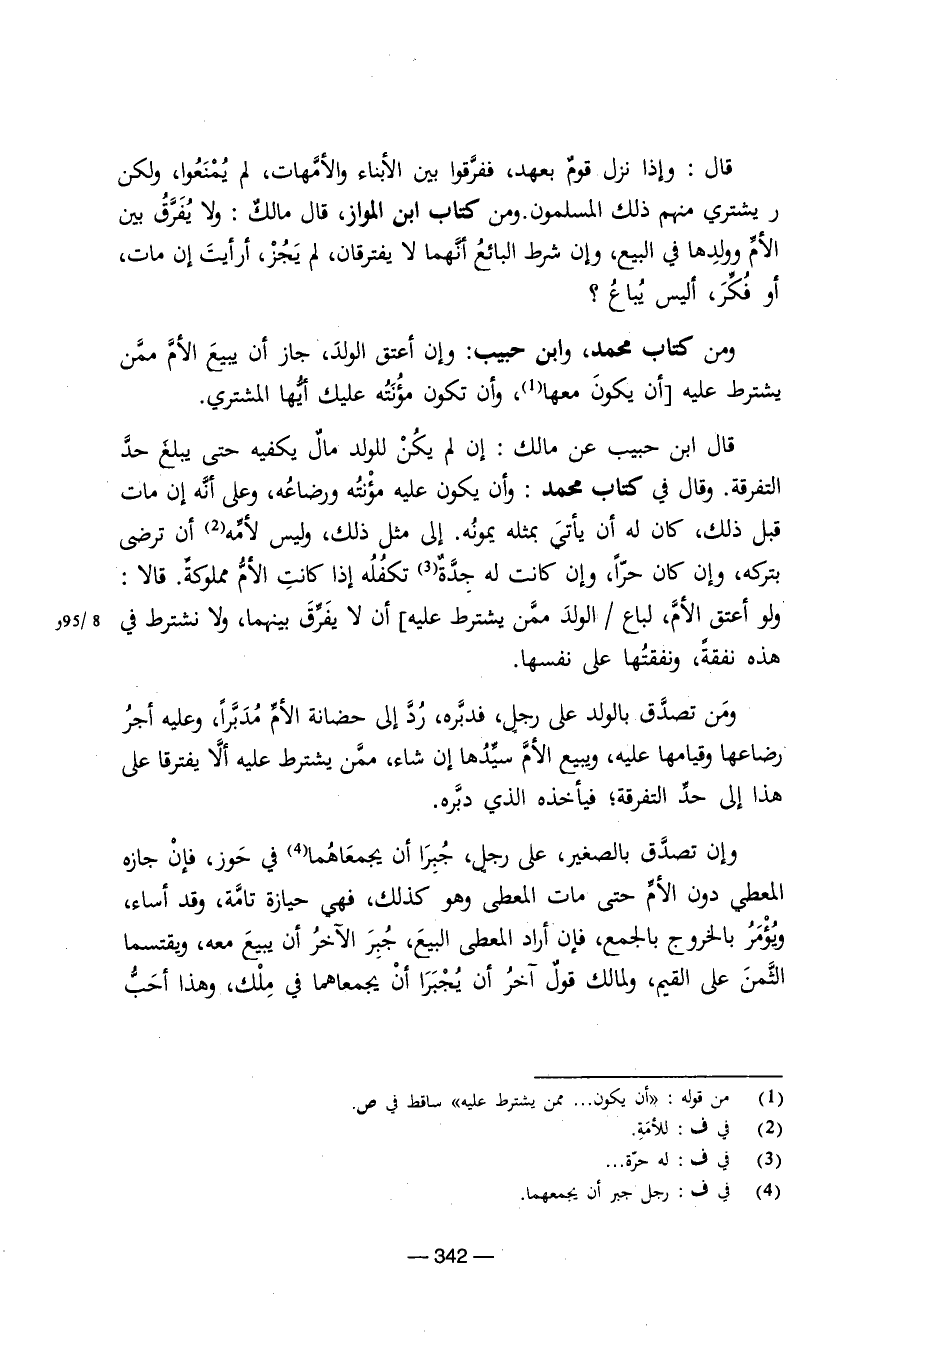 قال : وإذا نزل قومٌ بعهد، ففرَّقوا بين الأبناء والأمَّهات، لم يُمْنَعُوا، ولكن
ر يشتري منهم ذلك المسلمون.ومن كتاب ابن المواز، قال مالكٌ : ولا يُفَرَّقُ بين
الأمِّ وولدِها في البيع، وإن شرط البائعُ أنَّهما لا يفترقان، لم يَجُزْ، أرأيتَ إن مات،
أو فُكِّرَ، أليس يُباعُ ؟
ومن كتاب محمد، وابن حبيب: وإن أعتق الولدَ، جاز أن يبيعَ الأمَّ ممَّن
يشترط عليه [أن يكونَ معها(1)، وأن تكون مؤُنَتُه عليك أيُّها المشتري.
قال ابن حبيب عن مالك : إن لم يكُنْ للولد مالٌ يكفيه حتى يبلغَ حدَّ
التفرقة. وقال في كتاب محمد : وأن يكون عليه مؤْنتُه ورضاعُه، وعلى أنَّه إن مات
قبل ذلك، كان له أن يأتيَ بمثله يمونُه. إلى مثل ذلك، وليس لأمِّه(2) أن ترضى
بتركه، وإن كان حرّاً، وإن كانت له جدَّةٌ(3) تكفُلُه إذا كانتِ الأمُّ مملوكةً. قالا :
ولو أعتق الأمَّ، لباع / الولدَ ممَّن يشترط عليه] أن لا يفَرِّقَ بينهما، ولا نشترط في 8 /95و
هذه نفقةً، ونفقتُها على نفسها.
ومَن تصدَّق بالولد على رجلٍ، فدبَّره، رُدَّ إلى حضانة الأمِّ مُدَبَّراً، وعليه أجرُ
رضاعها وقيامها عليه، ويبيع الأمَّ سيِّدُها إن شاء، ممَّن يشترط عليه ألَّا يفترقا على
هذا إلى حدِّ التفرقة؛ فيأخذه الذي دبَّره.
وإن تصدَّق بالصغير، على رجلٍ، جُبِرَا أن يجمعَاهُما(4) في حَوز، فإنْ حازه
المعطي دون الأمِّ حتى مات المعطى وهو كذلك، فهي حيازة تامَّة، وقد أساء،
ويُؤْمَرُ بالخروج بالجمع، فإن أراد المعطى البيعَ، جُبِرَ الآخرُ أن يبيعَ معه، ويقتسما
الثَّمنَ على القيم، ولمالك قولٌ آخرُ أن يُجْبَرَا أنْ يجمعاهما في مِلْك، وهذا أحَبُّ
(1) من قوله : «أن يكون... ممن يشترط عليه» ساقط في ص.
(2) في ف : للأمَةِ.
(3) في ف : له حرّة...
(4) في ف : رجل جبر أن يجمعهما.
— 342 —